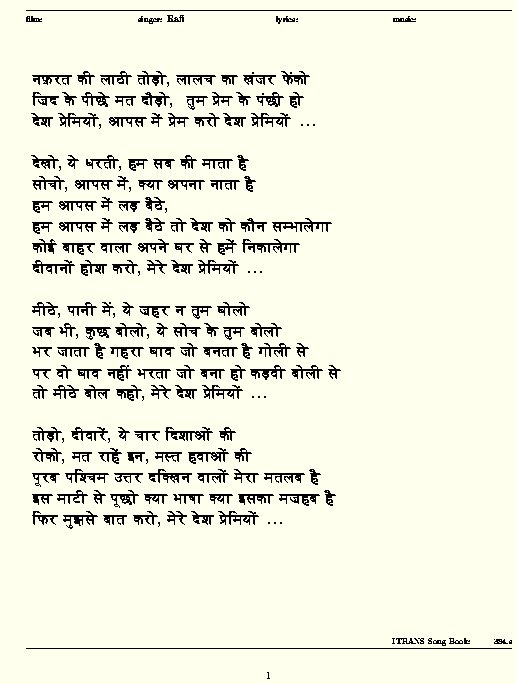 film: singer: Rafi lyrics: music:
नफ़रत की लाठी तोड़ो, लालच का खंजर फेंको
जिद के पीछे मत दौड़ो, तुम प्रेम के पंछी हो
देश प्रेमियों, आपस में प्रेम करो देश प्रेमियों ...
देखो, ये धरती, हम सब की माता है
सोचो, आपस में, क्या अपना नाता है
हम आपस में लड़ बैठे,
हम आपस में लड़ बैठे तो देश को कौन सम्भालेगा
कोई बाहर वाला अपने घर से हमें निकालेगा
दीवानों होश करो, मेरे देश प्रेमियों ...
मीठे, पानी में, ये जहर न तुम घोलो
जब भी, कुछ बोलो, ये सोच के तुम बोलो
भर जाता है गहरा घाव जो बनता है गोली से
पर वो घाव नहीं भरता जो बना हो कड़वी बोली से
तो मीठे बोल कहो, मेरे देश प्रेमियों ...
तोड़ो, दीवारें, ये चार दिशाओं की
रोको, मत राहें इन, मस्त हवाओं की
पूरब पश्चिम उत्तर दक्खिन वालों मेरा मतलब है
इस माटी से पूछो क्या भाषा क्या इसका मजहब है
फिर मुझसे बात करो, मेरे देश प्रेमियों ...
ITRANS Song Book:
1